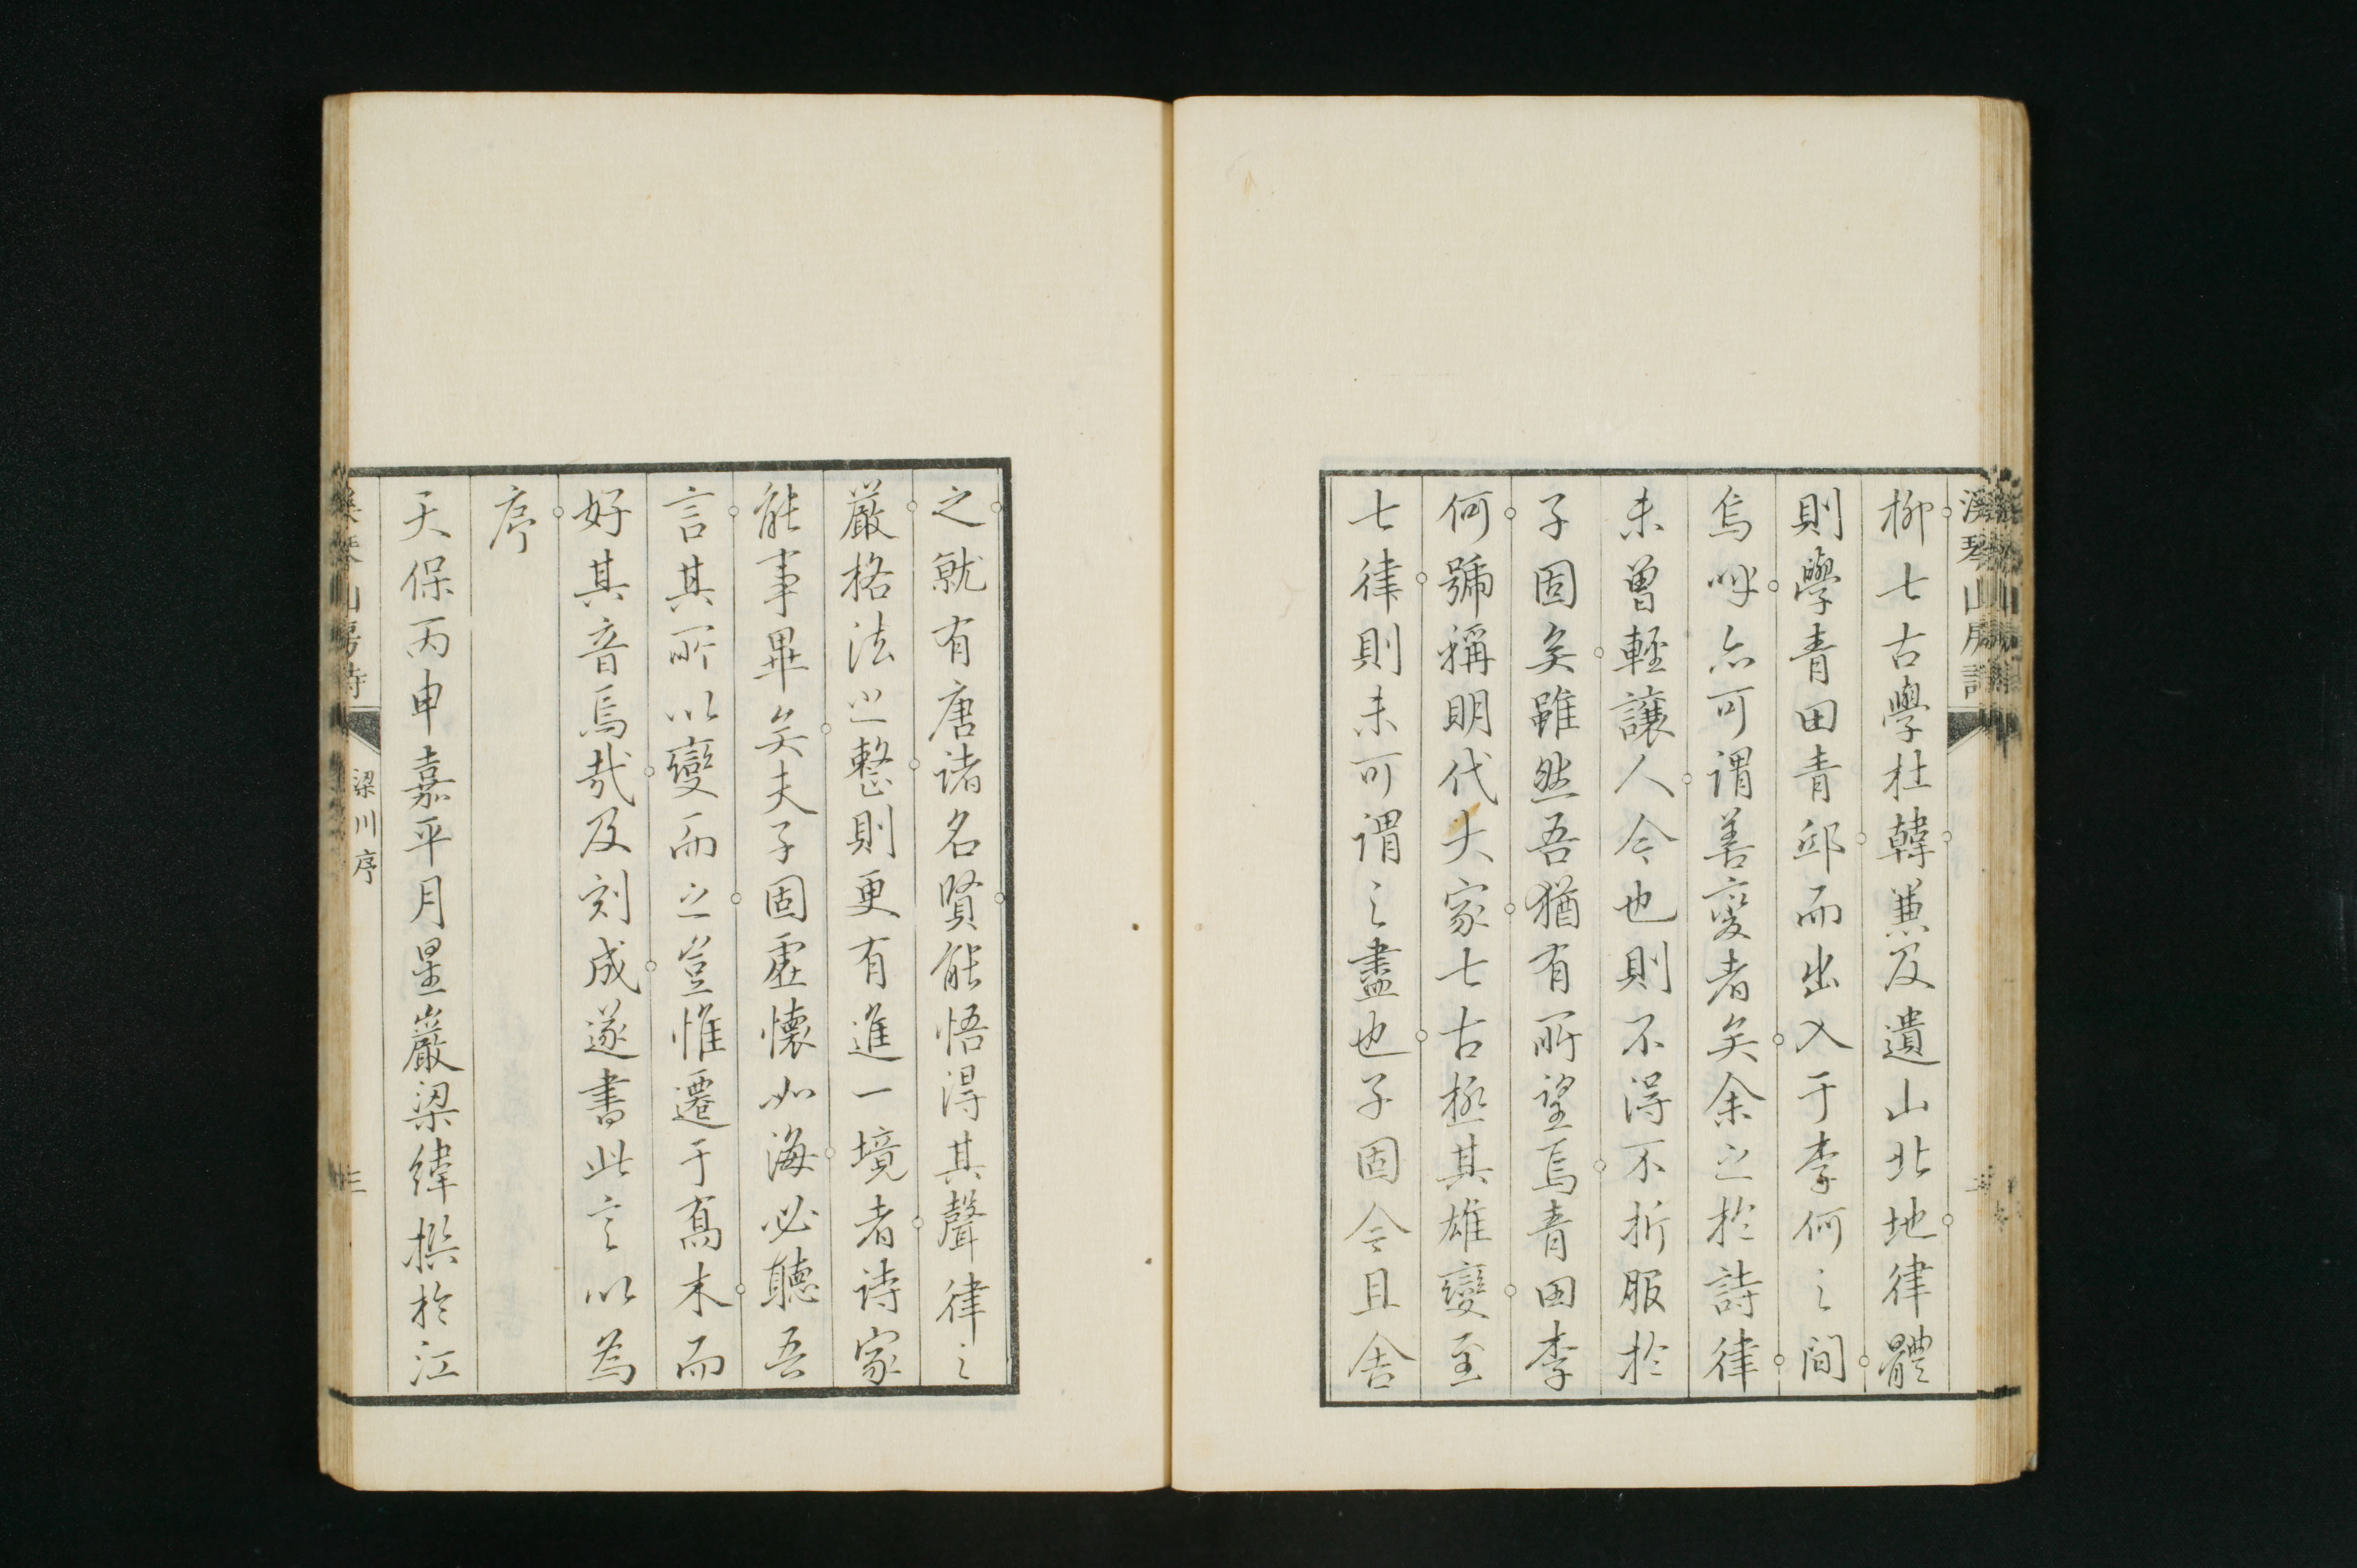 柳七古學杜韓兼及遺山北地律體
則學青田青邱而出入于李何之間
烏呼亦可謂善變者矣余之於詩律
未曾輕讓人今也則不得不折服於
子固矣雖然吾猶有所望焉青田李
何號稱明代大家七古極其雄變至
七律則未可謂之盡也子固今且舍
之就有唐諸名賢能悟得其聲律之
嚴格法之整則更有進一境者詩家
能事畢矣夫子固虛懷如海必聽吾
言其所以變而之豈惟遷于喬木而
好其音焉哉及刻成遂書此言以為
序
天保丙申嘉平月星巖梁緯撰於江
梁川序
三